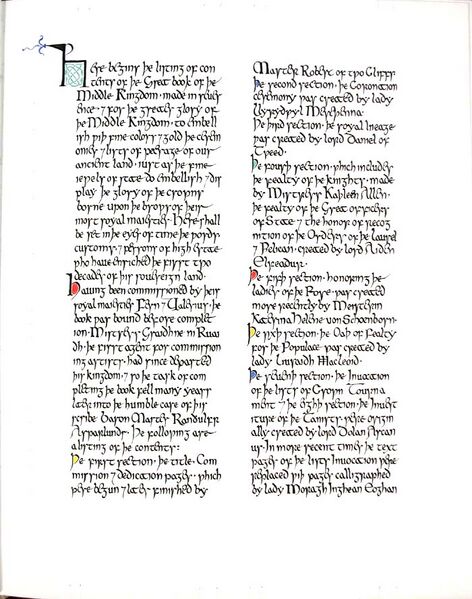 Here begins þe listing of con
tents of þe Great book of þe
Middle Kingdom · made in rever
ence · & for þe greater glory of
þe Middle Kingdom · to embell
ish wiþ fine colors & gold þe cerem
onies & lists of passage of our
ancient land · just as þe fine
jewels of state do embellish & dis
play þe glory of þe crowns
borne upon þe brows of þeir
most royal majesties. Here shall
be set in þe eyes of time þe words
customs & persons of high estate
who have enriched þe first two
decades of þis sovereign land.
Having been commissioned by þeir
royal majesties & þe
book was bound before complet
ion. Mistress Graidhne ni Rua
dh · þe first agent for commission
ing artists · had since departed
þis kingdom · & so þe task of com
pleting þe book fell many years
later into þe humble care of þis
scribe Baron Master
þe following are
a listing of þe contents:
þe first section · þe title · Com
mission & dedication pages · which
were begun & later finished by
Master Robert of two Cliffs
þe second section · þe Coronation
ceremony was created by lady
þe third section · þe royal lineage
was created by lord Daniel of
Tseed.
þe fourþ section · which includes
þe fealty of þe knights · made
by Mistress Kaþleen Allen ·
þe fealty of þe Great officers
of State · & the honor of recog
nition of þe Orders of þe laurel
& Pelican · created by lord Aiden
Elfeadur.
þe fifþ section · honoring þe
ladies of þe Rose · was created
more recently by Meisterin
Katerina Helene von Schoenborn.
þe sixþ section · þe Oaþ of Fealty
for þe Populace was created by
lady MacLeod.
þe sevenþ section · þe Invocation
of þe lists of Crown Tourna
ment & þe eighþ section · þe Invest
iture of þe Tanists were origin
ally created by lord Dolan
In more recent times þe text
pages of þe lists Invocation were
replaced wiþ pages calligraphed
by lady Moragh Inghean Eoghan